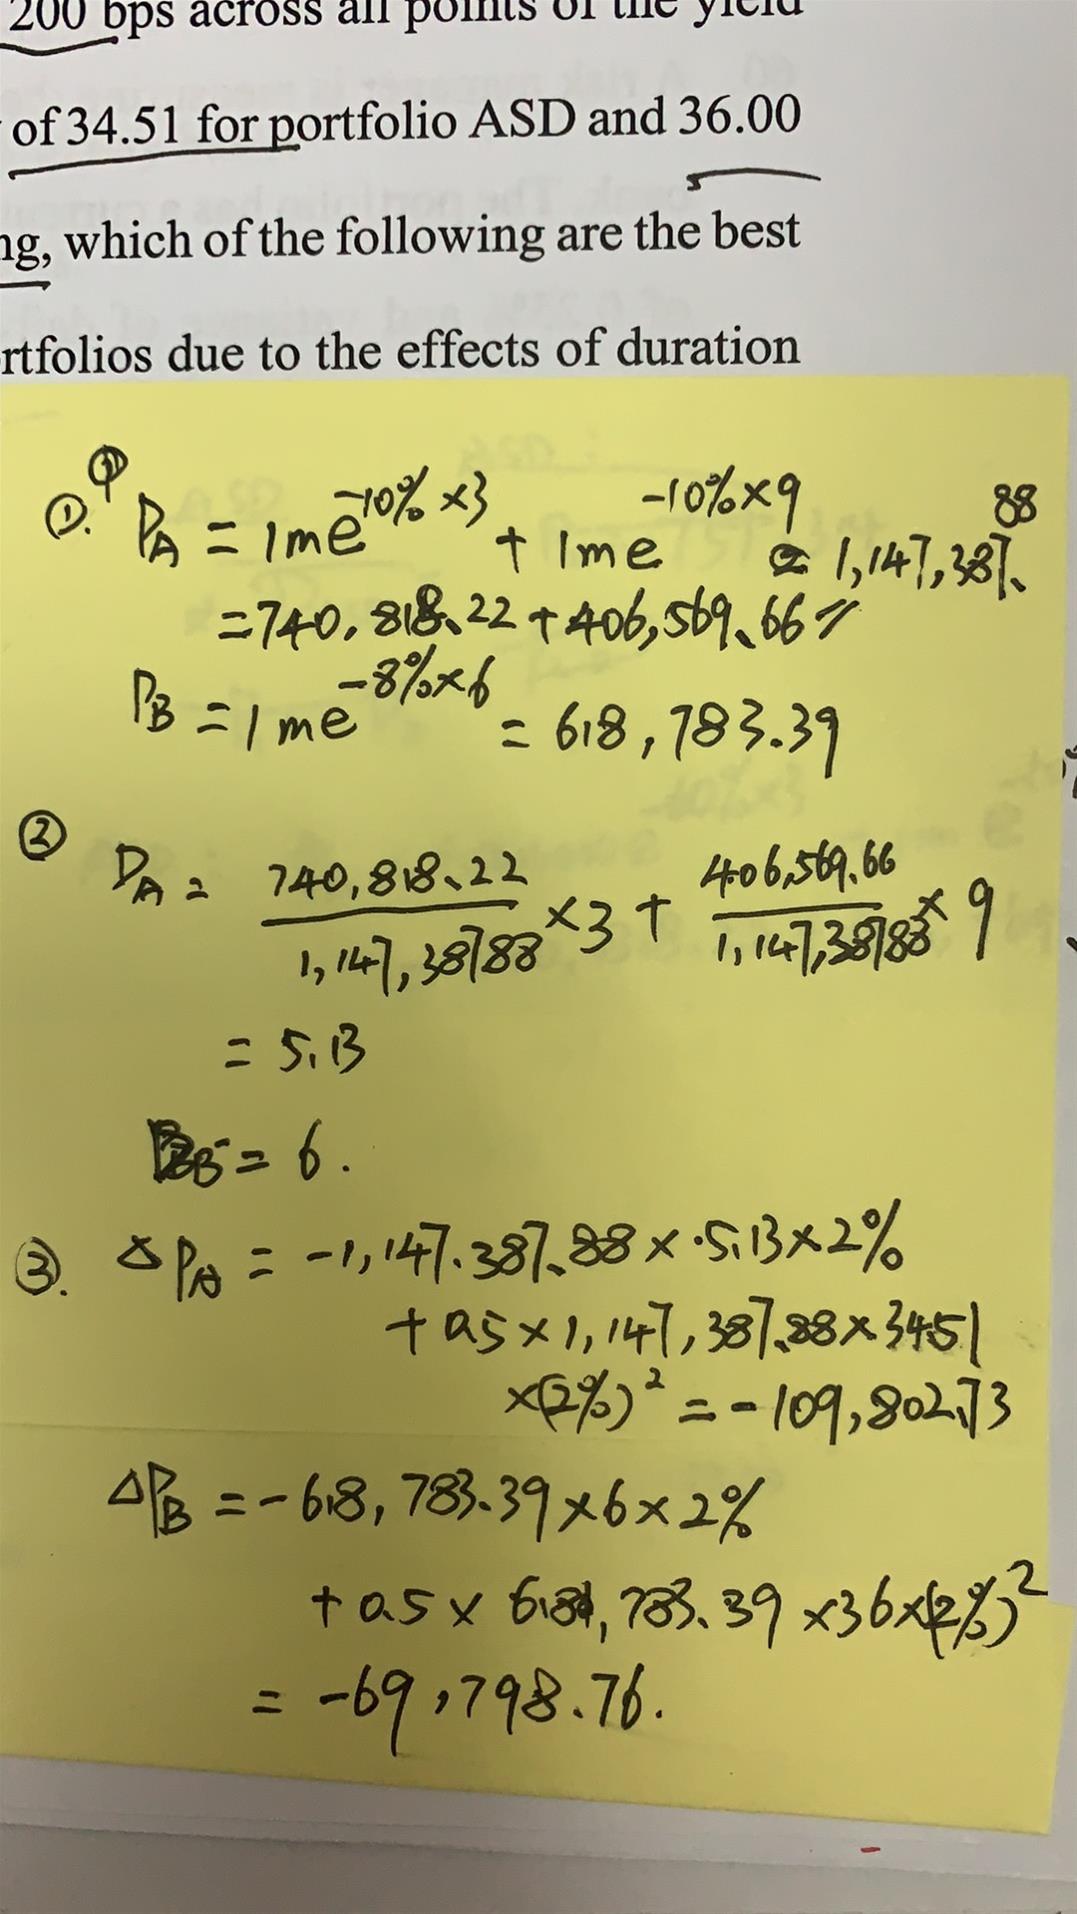 200 bps across all points of the yield
of 34.51 for portfolio ASD and 36.00
ng, which of the following are the best
rtfolios due to the effects of duration
①. P_A = 1me^{-10%×3} + 1me^{-10%×9} = 1,147,387.88
= 740,818.22 + 406,569.66
P_B = 1me^{-8%×6} = 618,783.39
② D_A = 740,818.22/1,147,387.88 ×3 + 406,569.66/1,147,387.88 × 9
= 5.13
B = 6.
③. ΔP_A = -1,147,387.88 × 5.13 × 2%
+ 0.5 × 1,147,387.88 × 34.51
×(2%)² = -109,802.73
ΔP_B = -618,783.39 × 6 × 2%
+ 0.5 × 618,783.39 × 36 × (2%)²
= -69,798.76.